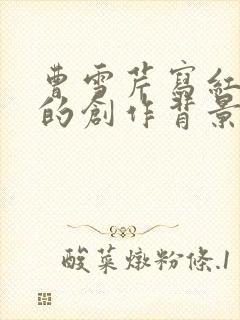 曹雪芹寫紅
的創作背景
酸菜燉粉條.1